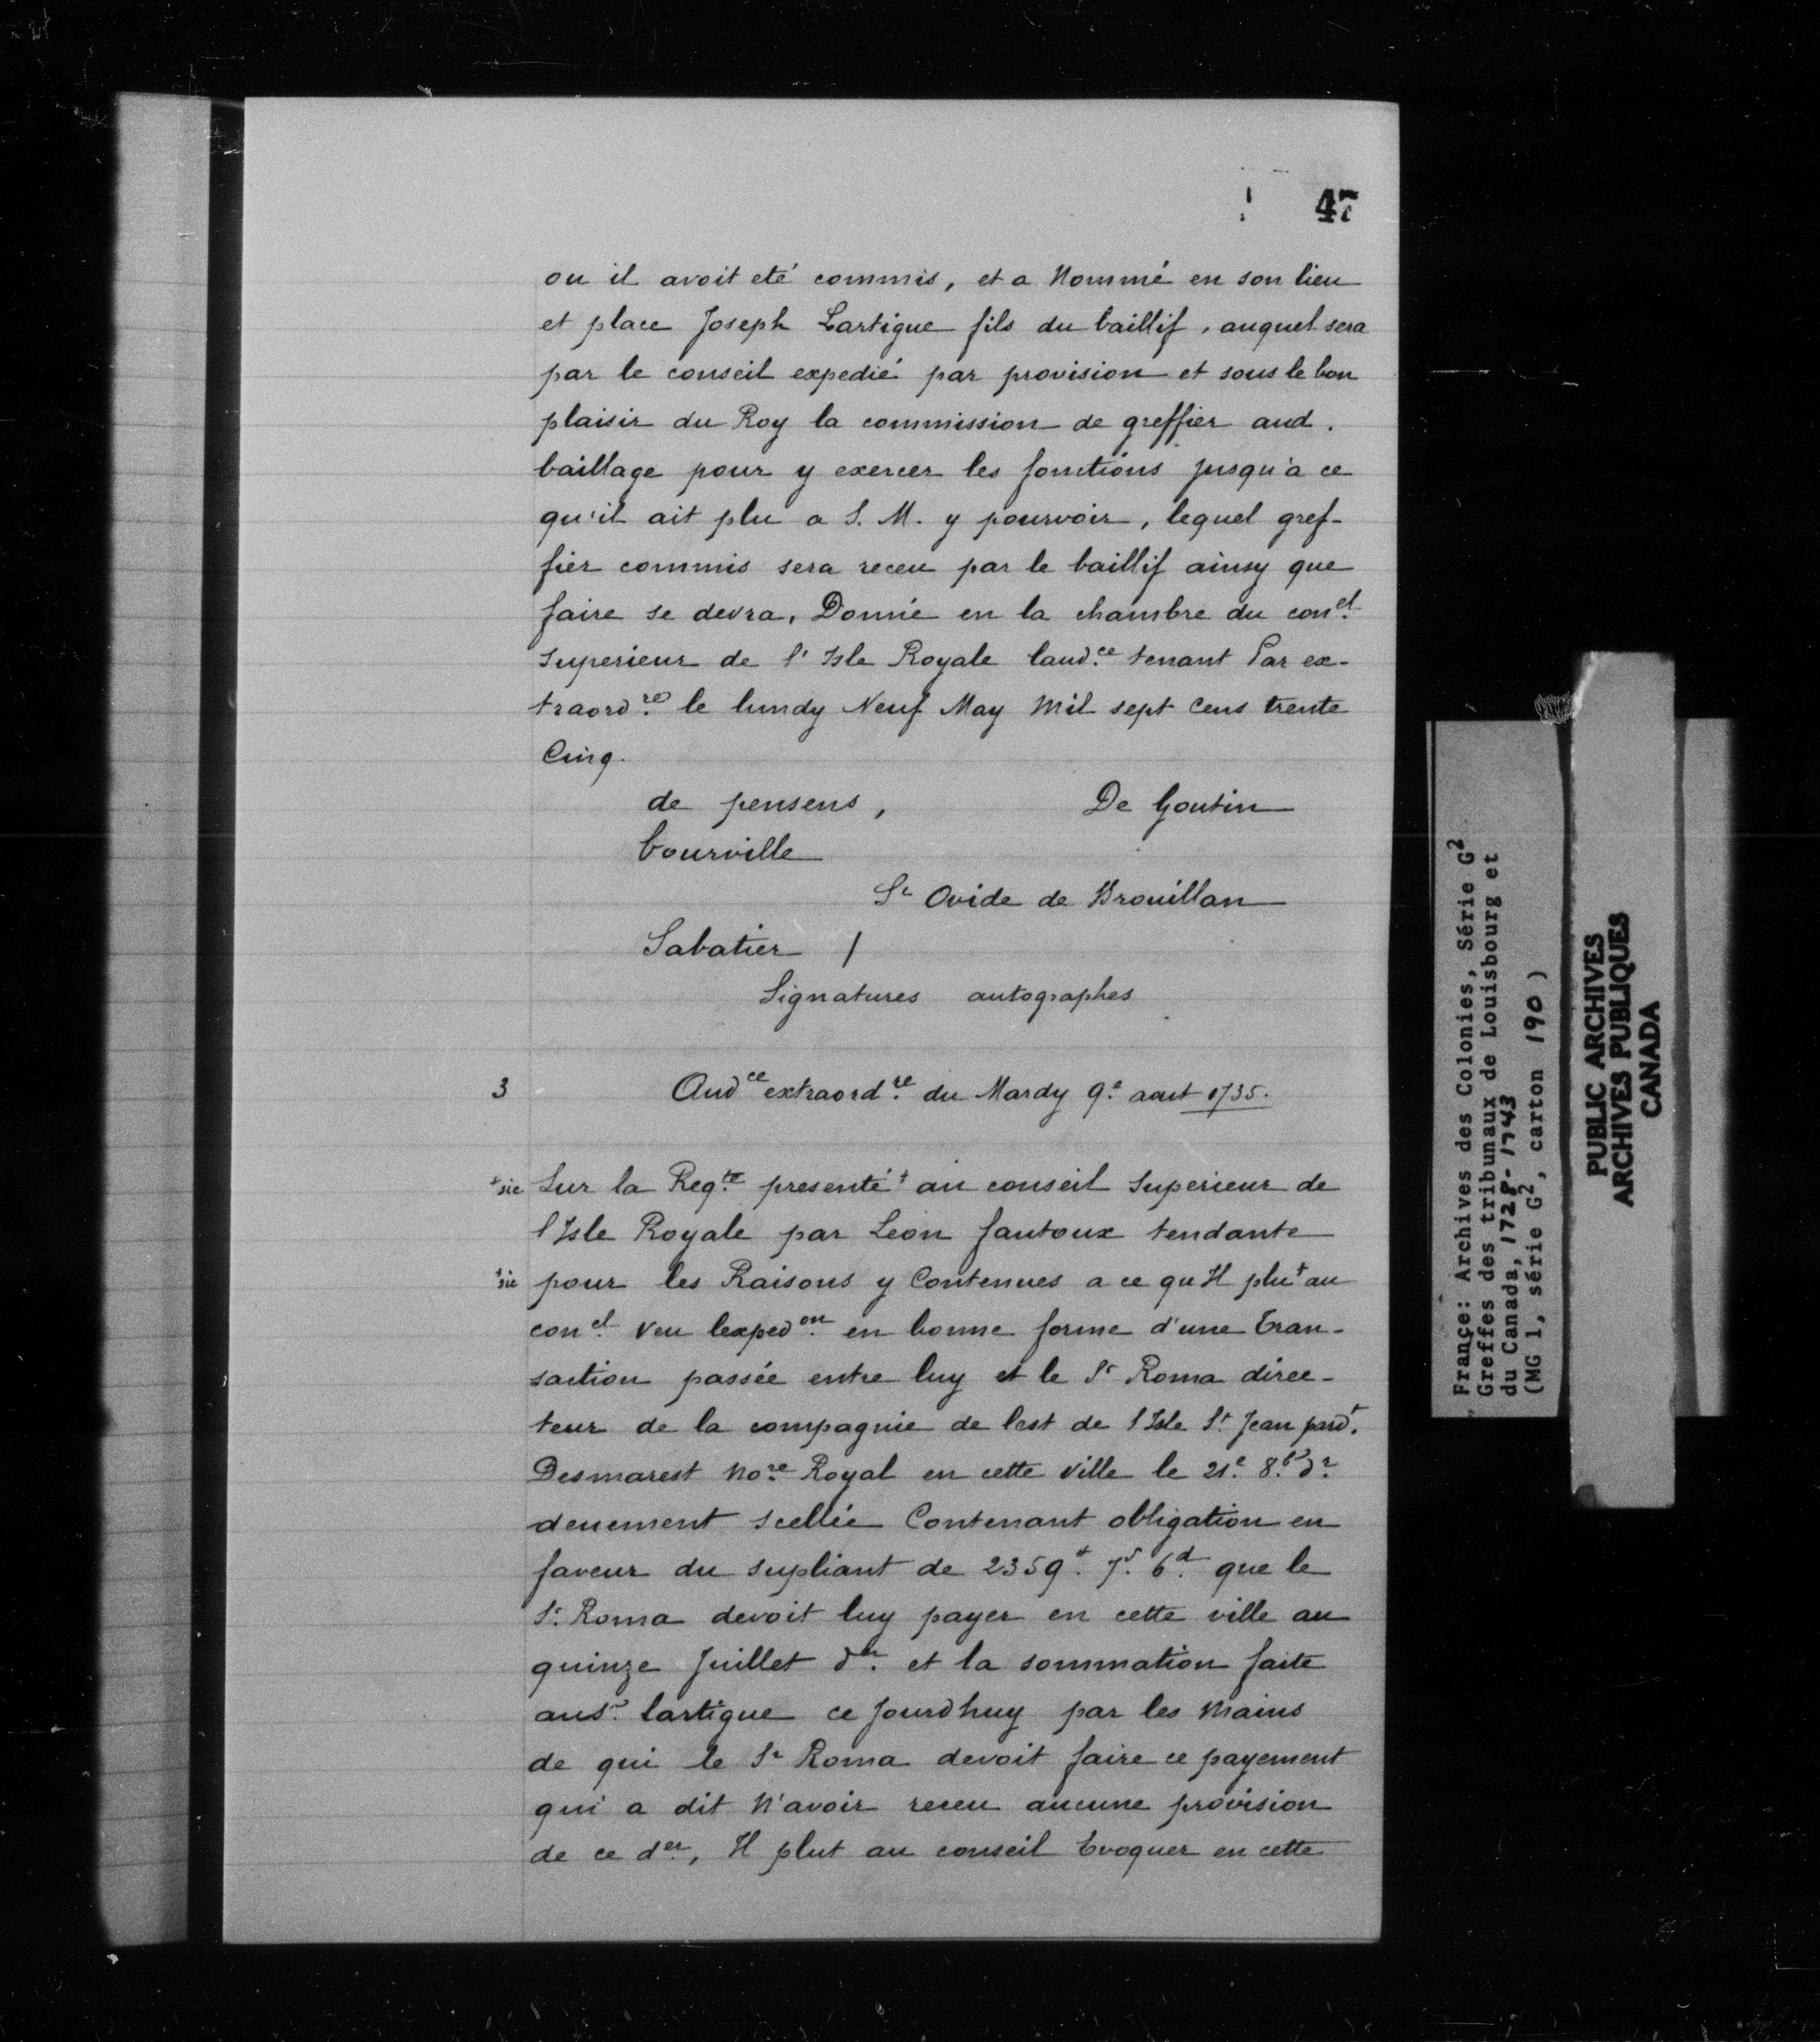 47
ou il avoit eté commis, et a Nommé en son lieu
et place Joseph Lartigue fils du baillif, auquel sera
par le conseil expedié par provision et sous le bon
plaisir du Roy la commission de greffier aud.
baillage pour y exercer les fonctions jusqu'a ce
qu'il ait plu a S. M. y pourvoir, lequel gref-
fier commis sera receu par le baillif ainsy que
faire se devra, Donné en la chambre du con.el
Superieur de l'Isle Royale laud.ce tenant Par ex-
traord.re le lundy Neuf May Mil sept Cens trente
Cinq.
de pensens, De Goutin
bourville
St Ovide de Brouillan
Sabatier /
Signatures autographes
3 Aud.ce extraord.re du Mardy 9.e aout 1735.
+sic Sur la Reqte presenté+ au conseil Superieur de
l'Isle Royale par Leon fautoux tendante
+sic pour les Raisons y Contenues a ce qu Il plu+ au
con.el veu lexped.on en bonne forme d'une Tran-
saction passée entre luy et le Sr Roma direc-
teur de la compagnie de lest de l Isle St Jean pard.t
Desmarest No.re Royal en cette ville le 21.e 8.b d.r
deuement scellée Contenant obligation en
faveur du supliant de 2359.# 7.s 6.d que le
S.r Roma devoit luy payer en cette ville au
quinze Juillet d.er et la sommation faite
aus.r lartigue ce jourdhuy par les Mains
de qui le Sr Roma devoit faire ce payement
qui a dit N'avoir receu aucune provision
de ce der, Il plut au conseil Evoquer en cette
France: Archives des Colonies, Série G2
Greffes des tribunaux de Louisbourg et
du Canada, 1728-1743
(MG 1, série G2, carton 190)
PUBLIC ARCHIVES
ARCHIVES PUBLIQUES
CANADA